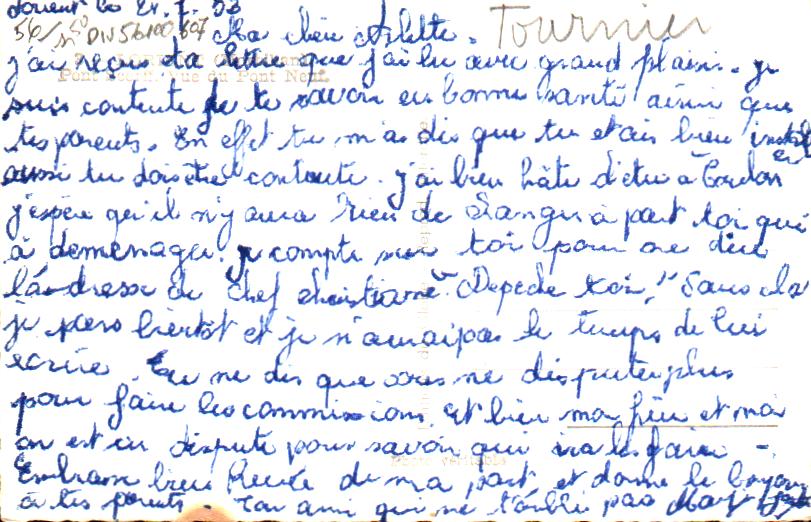 Ma chère Arlette. Tournier
j'ai reçus ta lettre que j'ai lu avec grand plaisir. je
suis contente de te savoir en bonne santé ainsi que
tes parents. En effet tu m'as dis que tu etais bien install
er
aussi tu dois être contente. j'ai bien hâte d'être à Cordon
j'espère qu'il n'y aura rien de à part toi qui
à demenager. je compte sur toi pour me dire
l'adresse de chef christiane. Depeche toi! Sans cela
je pars bientôt et je n'aurai pas le temps de lui
ecrire. Tu me dis que vous ne disputer plus
pour faire les commissions. Et bien mon frère et moi
on est en dispute pour savoir qui ira les faire -
Embrasse bien Renée de ma part et donne le bonjour
à tes parents. Ton amie qui ne t'oublie pas